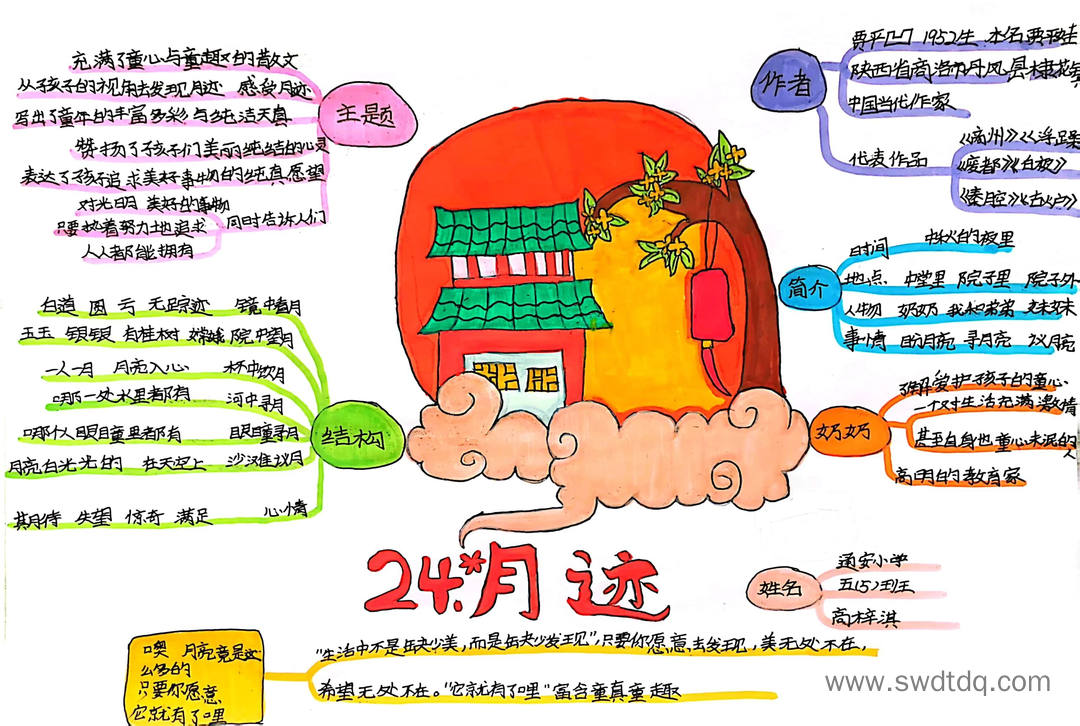 主题
充满了童心与童趣的散文
从孩子的视角去发现月迹 感受月迹
写出了童年的丰富多彩与纯洁天真
赞扬了孩子们美丽纯结的心灵
表达了孩子追求美好事物的纯真愿望
同时告诉人们
对光明 美好的事物
只要执着努力地追求
人人都能拥有
结构
白道 圆 亏 无踪迹 镜中看月
玉玉 银银 有桂树 嫦娥 院中望月
一人一月 月亮入心 杯中饮月
哪一处水里都有 河中寻月
哪个人眼瞳里都有 眼瞳寻月
月亮白光光的 在天空上 沙滩议月
期待 失望 惊奇 满足 心情
作者
贾平凹 1952生 本名贾平娃
陕西省商洛市丹风县棣花
中国当代作家
代表作品
《商州》《浮躁
《废都》《白夜》
《秦腔》《古炉》
简介
时间 中秋的夜里
地点 中堂里 院子里 院子外
人物 奶奶 我和弟弟 妹妹
事情 盼月亮 寻月亮 议月亮
奶奶
了解爱护孩子的童心
一个对生活充满激情
甚至自身也童心未泯的
人
高明的教育家
24.*月迹
姓名
通安小学
五(5)班
高梓淇
噢 月亮竟是这
么多的
只要你愿意
它就有了哩
"生活中不是缺少美,而是缺少发现",只要你愿意去发现,美无处不在,
希望无处不在。"它就有了哩"富含童真童趣
www.swdtdq.com